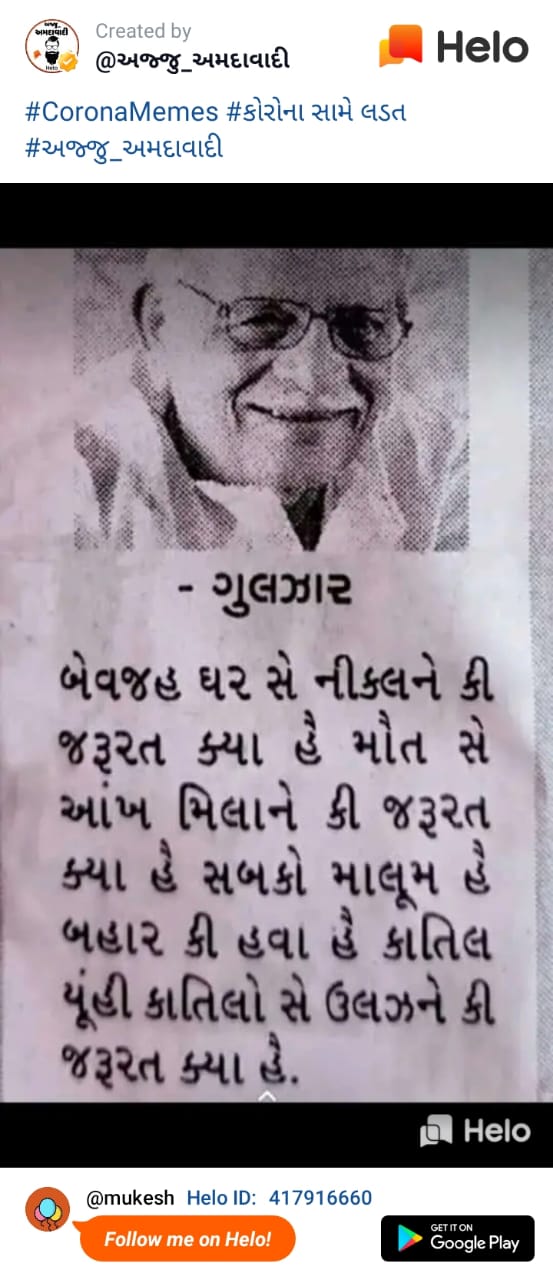 Created by
@અજ્જુ_અમદાવાદી
Helo
#CoronaMemes #કોરોના સામે લડત
#અજ્જુ_અમદાવાદી
- ગુલઝાર
બેવજહ ઘર સે નીકલને કી
જરૂરત ક્યા હૈ મૌત સે
આંખ મિલાને કી જરૂરત
ક્યા હૈ સબકો માલૂમ હૈ
બહાર કી હવા હૈ કાતિલ
યૂંહી કાતિલો સે ઉલઝને કી
જરૂરત ક્યા હૈ.
Helo
@mukesh Helo ID: 417916660
Follow me on Helo!
GET IT ON
Google Play